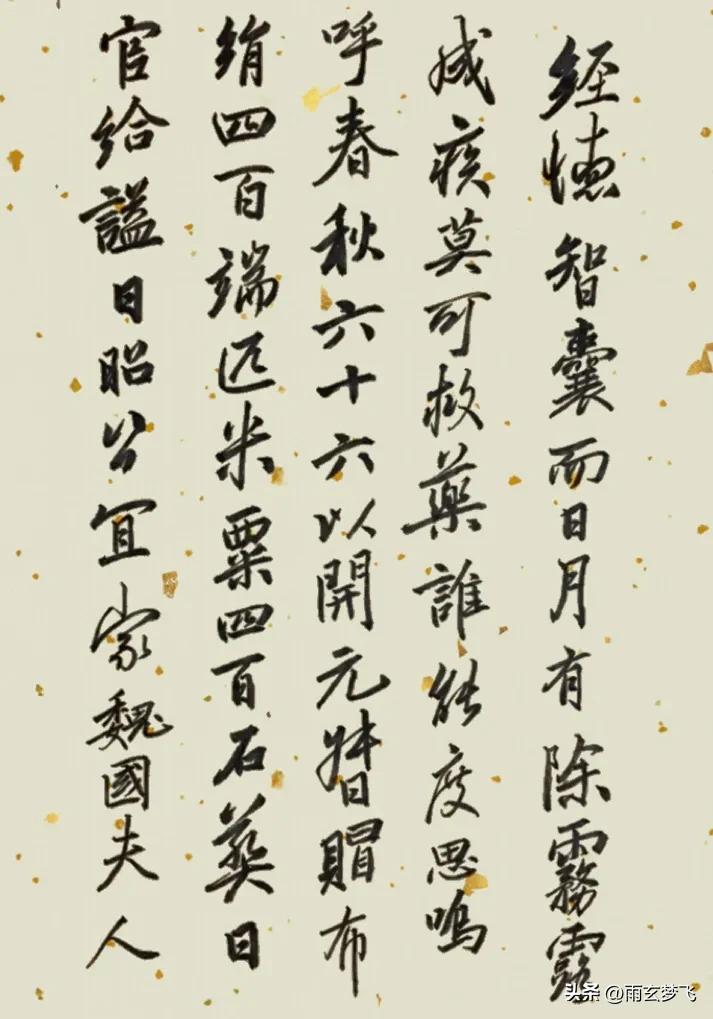 經德智囊而日月有除霧露
成疾莫可救藥誰能度思嗚
呼春秋六十六以開元賵布
絹四百端匹米粟四百石葬日
官給謚曰昭公宜家魏國夫人
头条 @雨玄梦飞